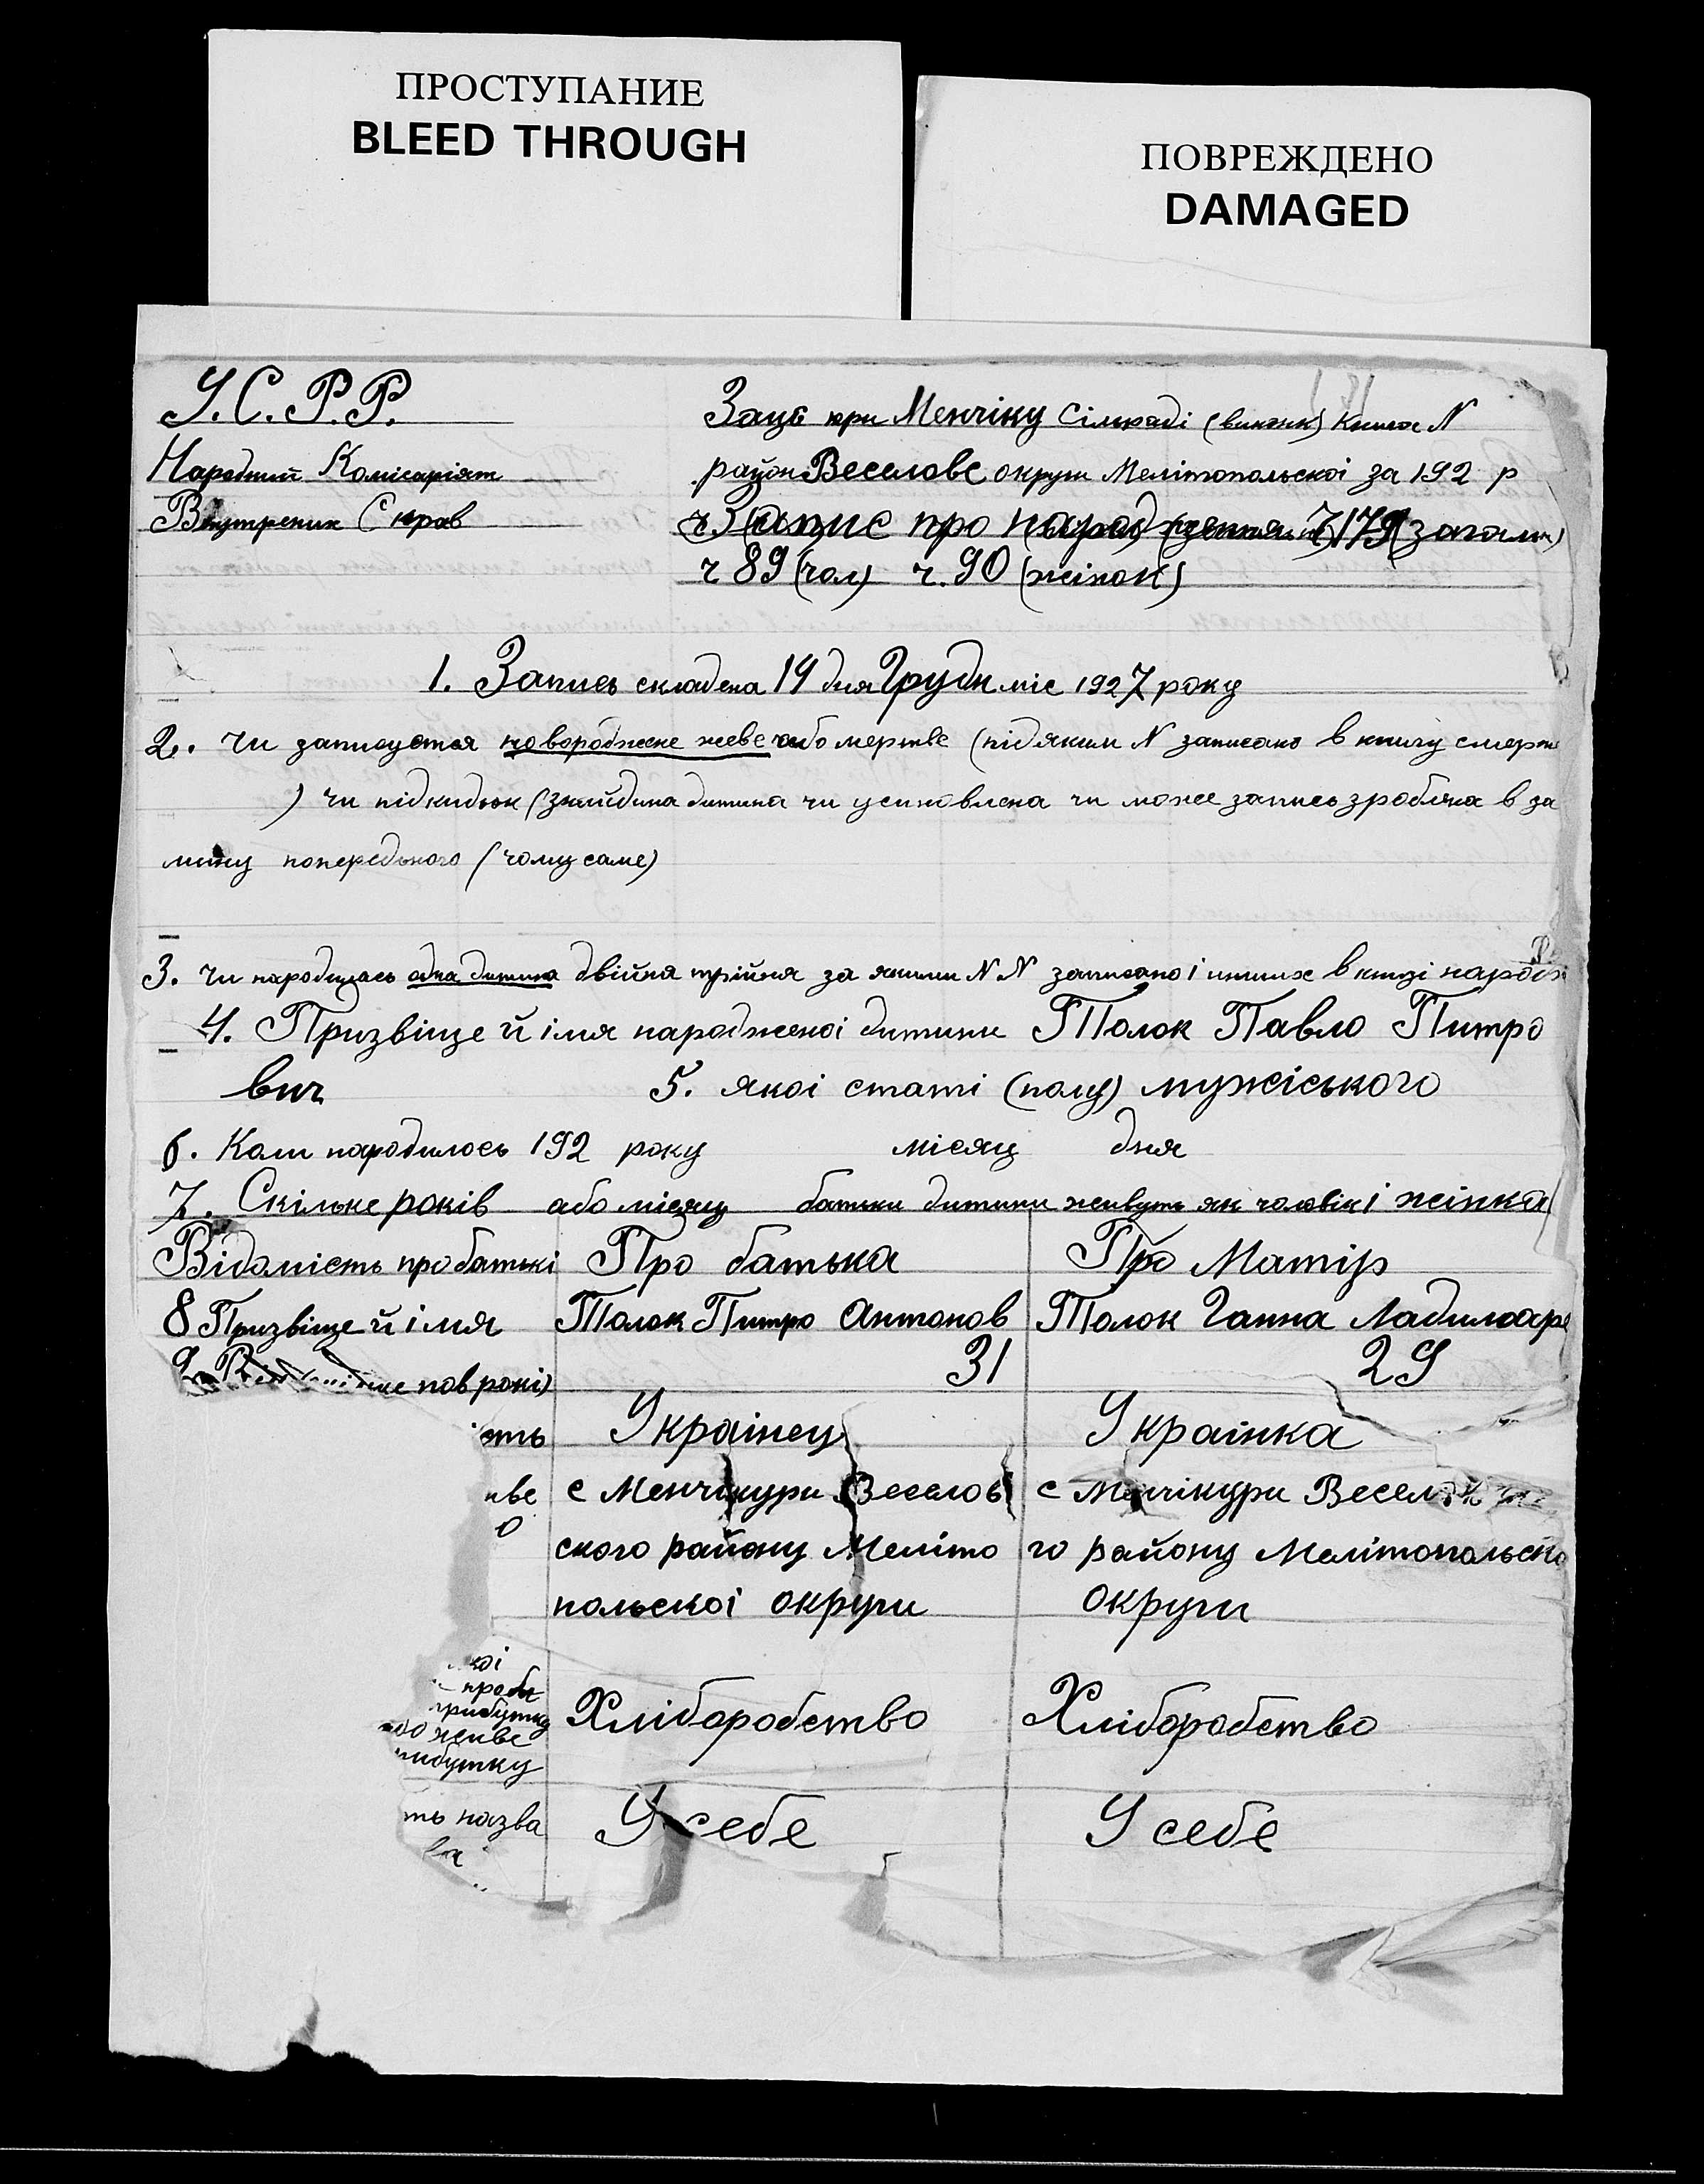 ПРОСТУПАНИЕ
BLEED THROUGH
ПОВРЕЖДЕНО
DAMAGED
У.С.Р.Р.
Народний Комісаріят
Внутрених Справ
Загс при Менчіку Сільраді (виконк) Книга N
район Веселовс округи Мелітопольскоі за 192 р
Запис про народження 179 (загальн)
ч 89 (чол) ч. 90 (жінок)
1. Запись складена 14 дня Грудн міс 1927 року
2. Чи записуэтся новороджене живе або мертве (під яким N записано в книгу смерти
) чи підкидьок (знайдина дитина чи усиновлена чи може запись зроблена в за
мину попередього (чому саме)
3. Чи народилась одна дитина двійня трійня за якими N N записано і инших в кнізі народж
4. Призвіще й імя народженоі дитини Толок Павло Питро
вич
5. якоі статі (полу) мужіського
6. Коли народилось 192 року місяц дня
7. Скільке років або місяц батьки дитини живуть як чоловік і жінка
Відомість про батькі
Про батька
Про Матір
8 Призвіще й імя
Толок Питро Антонов
Толок Ганна
9. пов років)
31
29
Украінец
Украінка
с Менчікури Веселов
ского району Меліто
польскоі округи
с Менчікури Весел
го району Мелітопольско
округи
прибутку
або живе
Хліборобство
Хліборобство
назва
У себе
У себе